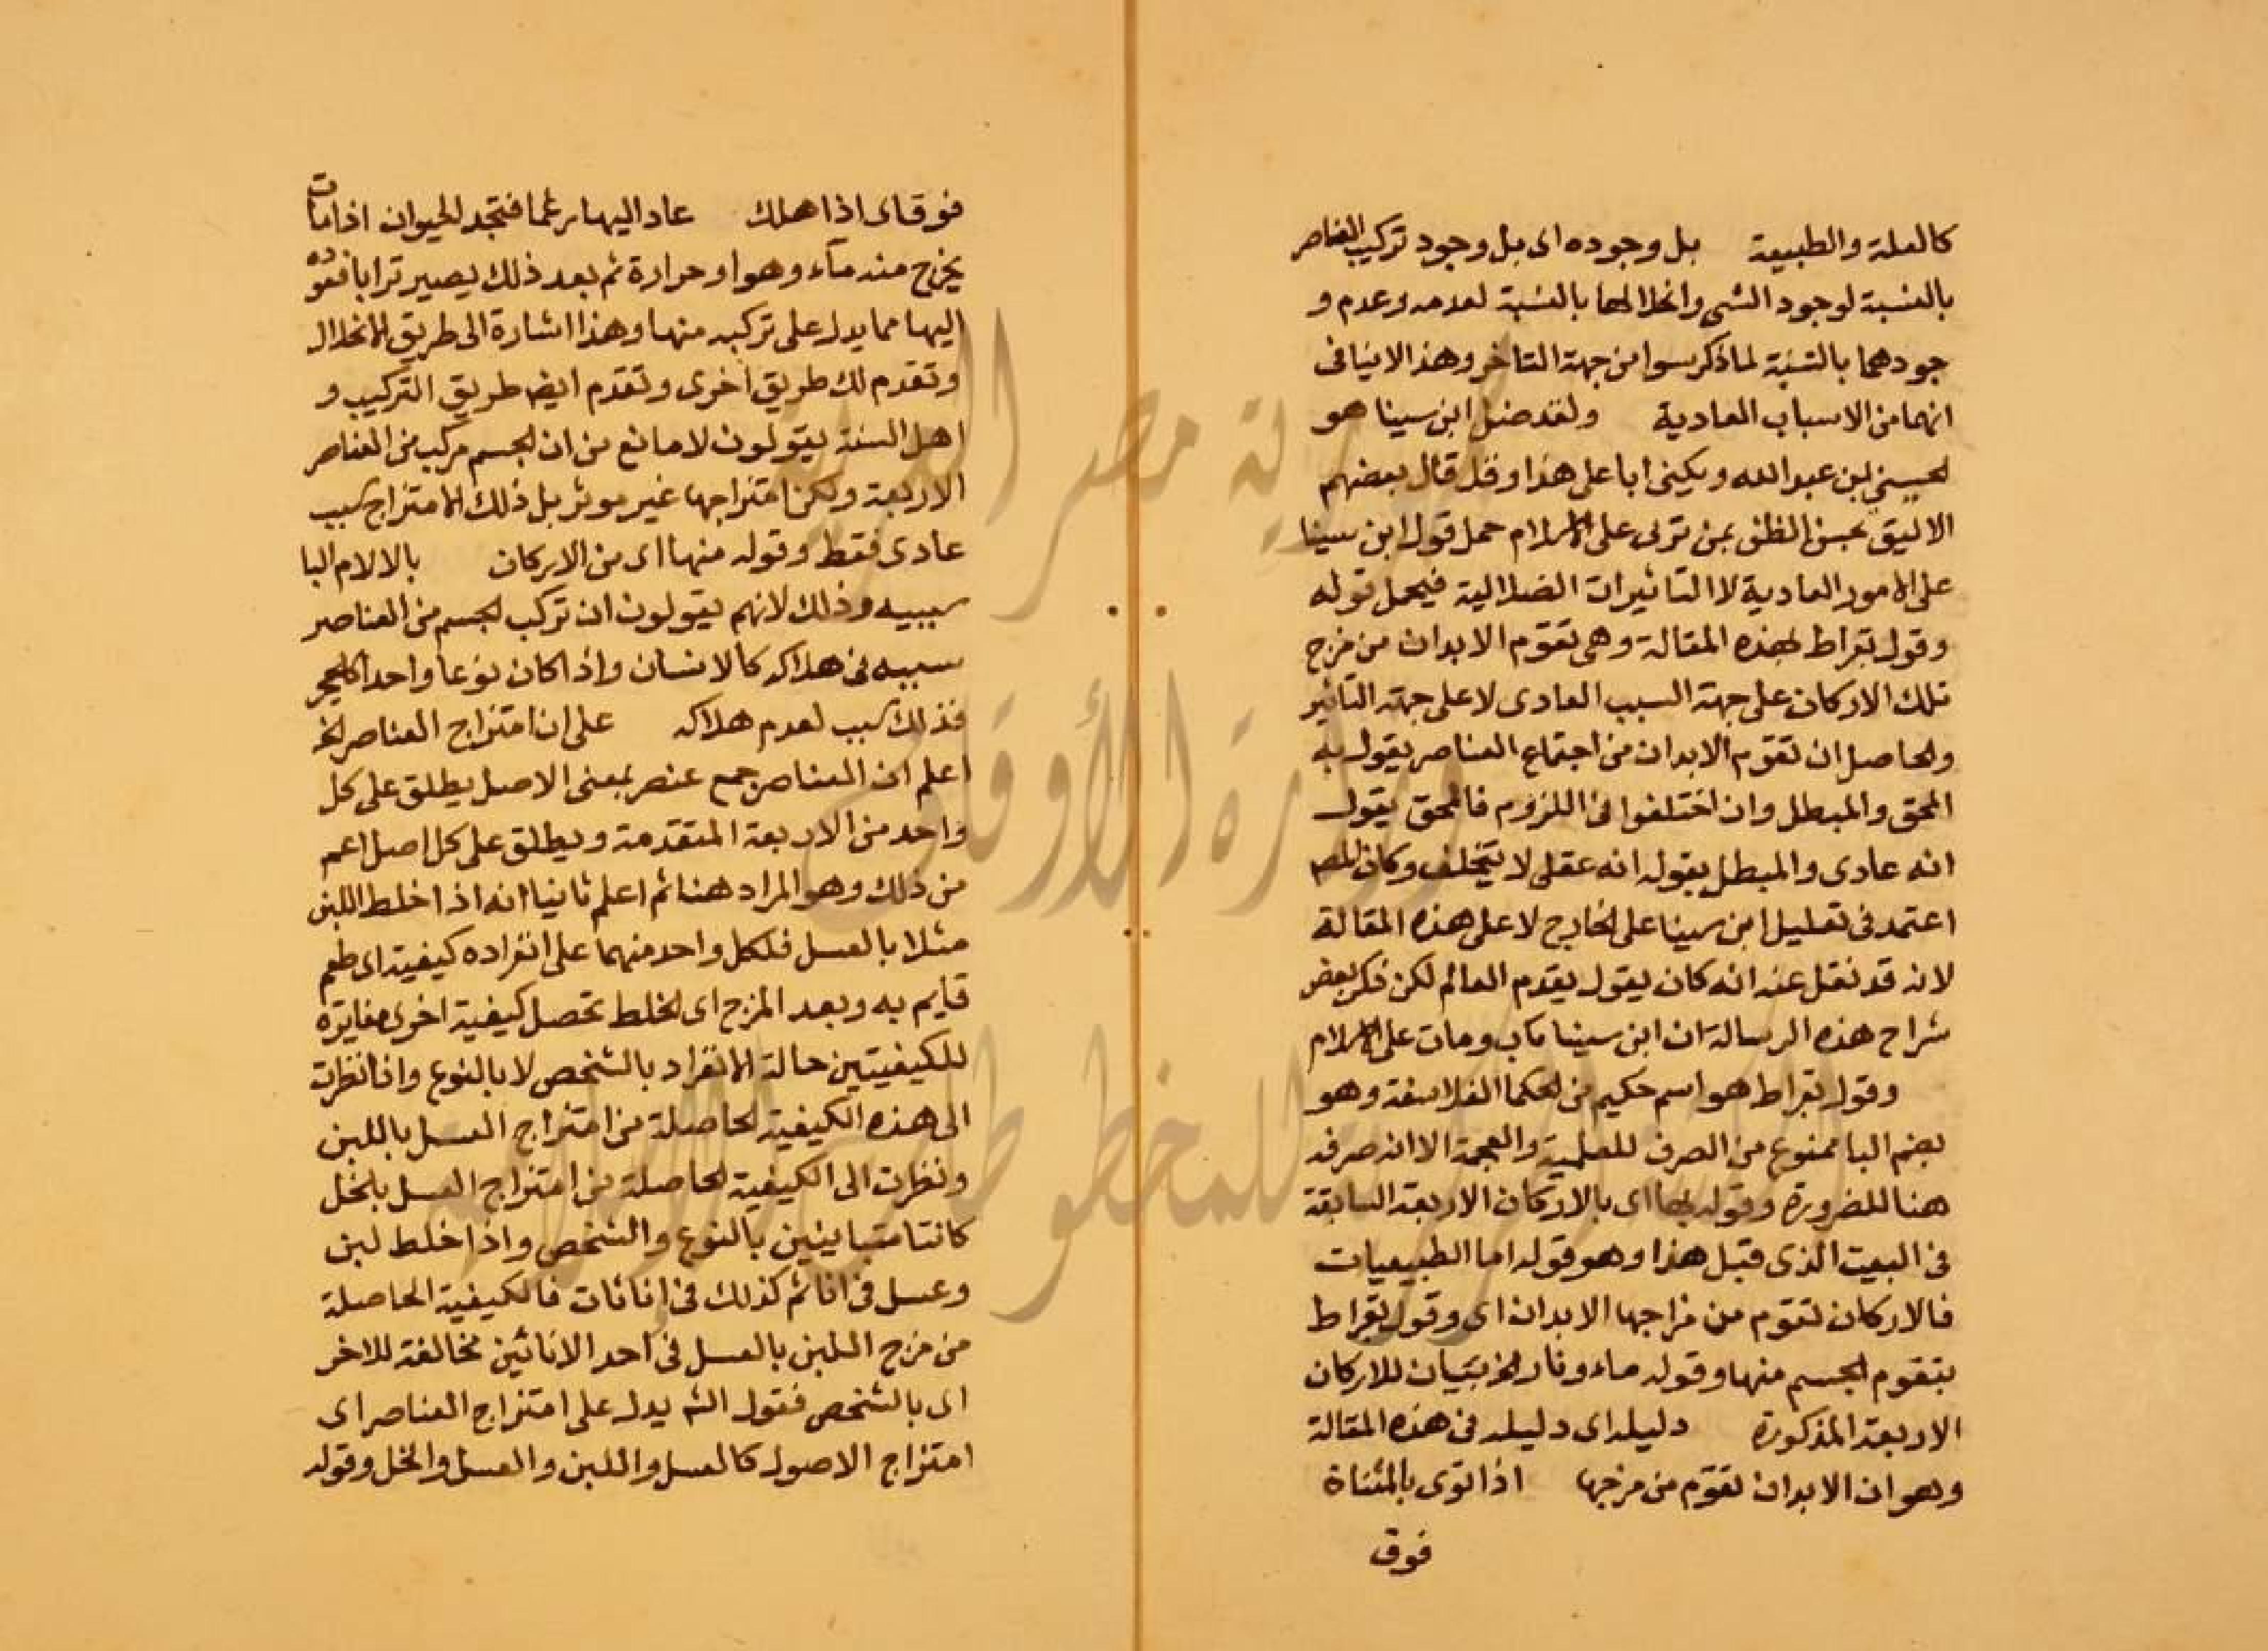 كالعلة والطبيعة بل وجوده اى بل وجود تركيب العناصر
بالنسبة لوجود الشى وانحلالها بالنسبة لعدمه وعدم و
جودهما بالنسبة لما ذكر سوا من جهة التاخر وهذا لاينافى
انهما من الاسباب العادية ولقد ضل ابن سينا هو
الحسين بن عبد الله ويكنى ابا على هذا وقد قال بعضهم
الاليق بحسن الظن بمن تربى على الاسلام حمل قول ابن سينا
على الامور العادية لا التاثيرات الضلالية فيحمل قوله
وقول بقراط بهذه المقالة وهى تقوم الابدان من مزج
تلك الاركان على جهة السبب العادى لا على جهة التاثير
والحاصل ان تقوم الابدان من اجتماع العناصر يقول به
المحق والمبطل وان اختلفوا فى اللزوم فالمحق يقول
انه عادى والمبطل يقول انه عقلى لا يتخلف وكان المص
اعتمد فى تعليل ابن سينا على الخارج لا على هذه المقالة
لانه قد نقل عنه انه كان يقول بقدم العالم لكن ذكر بعض
شراح هذه الرسالة ان ابن سينا تاب ومات على الاسلام
وقول بقراط هو اسم حكيم من الحكما الفلاسفة وهو
بضم البا ممنوع من الصرف للعلمية والعجمة الا انه صرفه
هنا للضرورة وقوله بها اى بالاركان الاربعة السابقة
فى البيت الذى قبل هذا وهو قوله اما الطبيعيات
فالاركان تقوم من مزاجها الابدان اى وقول بقراط
بتقوم الجسم منها وقوله ماء ونار الخ بيان للاركان
الاربعة المذكورة دليله اى دليله فى هذه المقالة
وهو ان الابدان تقوم من مزجها اذا توى بالمثناة
فوق
فوق اى اذا هلك عاد اليها رغما فتجد الحيوان اذا مات
يخرج منه ماء وهوا وحرارة ثم بعد ذلك يصير ترابا فعوده
اليها مما يدل على تركبه منها وهذا اشارة الى طريق الانحلال
وتقدم لك طريق اخرى وتقدم ايض طريق التركيب و
اهل السنة يقولون لا مانع من ان الجسم مركب من العناصر
الاربعة ولكن امتزاجها غير موثر بل ذلك الامتزاج سبب
عادى فقط وقوله منها اى من الاركان بالالام البا
سببيه وذلك لانهم يقولون ان تركب الجسم من العناصر
سببيه فى هلاكه كالانسان واذا كان نوعا واحدا كالحجر
فذلك سبب لعدم هلاكه على ان امتزاج العناصر الخ
اعلم ان العناصر جمع عنصر بمعنى الاصل يطلق على كل
واحد من الاربعة المتقدمة ويطلق على كل اصل اعم
من ذلك وهو المراد هنا ثم اعلم ثانيا انه اذا خلط اللبن
مثلا بالعسل فلكل واحد منهما على انفراده كيفية اى طعم
قايم به وبعد المزج اى الخلط تحصل كيفية اخرى مغايرة
للكيفيتين حالة الانفراد بالشخص لا بالنوع واذا نظرت
الى هذه الكيفية الحاصلة من امتزاج العسل باللبن
ونظرت الى الكيفية الحاصلة من امتزاج العسل بالخل
كانتا متباينين بالنوع والشخص واذا خلط لبن
وعسل فى انا ثم كذلك فى انا ثان فالكيفية الحاصلة
من مزج اللبن بالعسل فى احد الانائين مخالفة للاخر
اى بالشخص فقول الش يدل على امتزاج العناصر اى
امتزاج الاصول كالعسل واللبن والعسل والخل وقوله